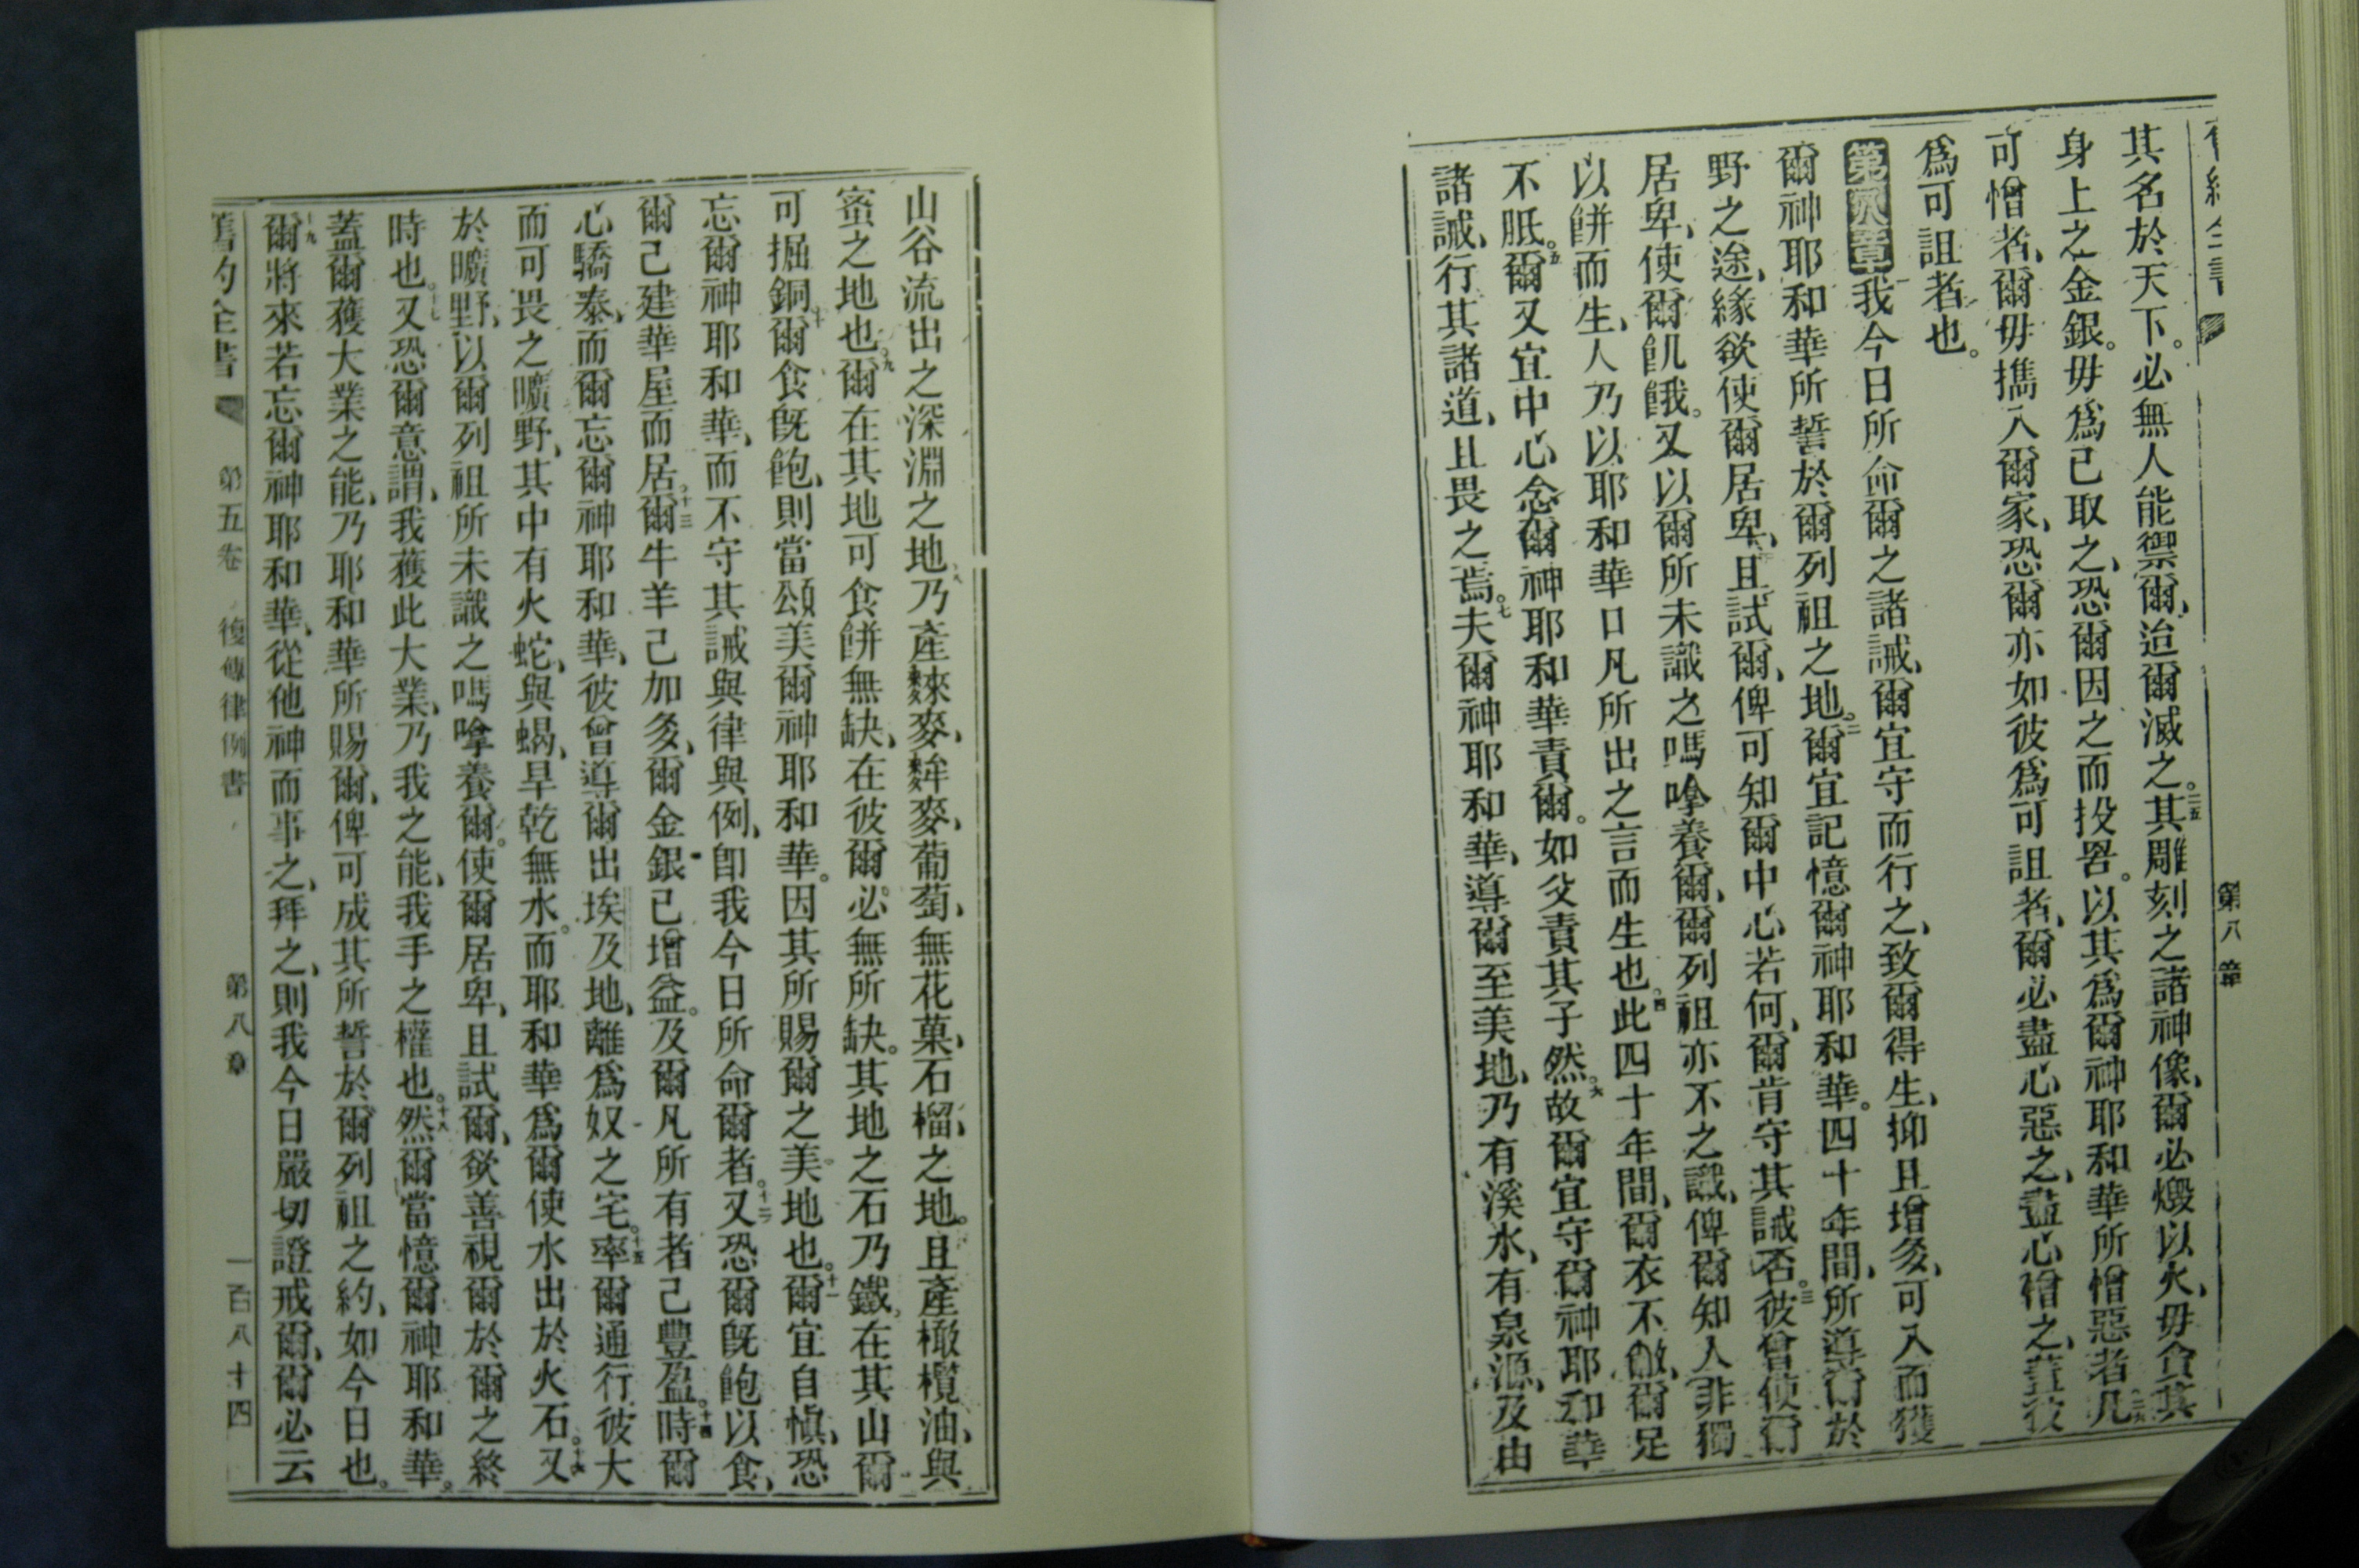 第八章
其名於天下。必無人能禦爾、迨爾滅之。二五其雕刻之諸神像、爾必燬以火、毋貪其
身上之金銀。毋爲己取之、恐爾因之而投罟。以其爲爾神耶和華所憎惡者凡
可憎者、爾毋攜入爾家、恐爾亦如彼爲可詛者、爾必盡心惡之、盡心憎之、蓋彼
爲可詛者也。
第八章一我今日所命爾之諸誡、爾宜守而行之、致爾得生、抑且增多、可入而獲
爾神耶和華所誓於爾列祖之地。二爾宜記憶爾神耶和華。四十年間、所導爾於
野之途、緣欲使爾居卑、且試爾、俾可知爾中心若何、爾肯守其誡否。三彼曾使爾
居卑、使爾飢餓。又以爾所未識之嗎嗱養爾、爾列祖亦不之識、俾爾知人非獨
以餅而生、人乃以耶和華口凡所出之言而生也。四此四十年間、爾衣不敝、爾足
不胝。五爾又宜中心念爾神耶和華責爾。如父責其子然。六故爾宜守爾神耶和華
諸誡、行其諸道、且畏之焉。七夫爾神耶和華、導爾至美地、乃有溪水、有泉源、及由
山谷流出之深淵之地、八乃產𥹄麥、麰麥、葡萄、無花菓、石榴、之地。且產橄欖油、與
蜜之地也。九爾在其地可食餅無缺、在彼爾必無所缺。其地之石乃鐵、在其山爾
可掘銅。十爾食旣飽、則當頌美爾神耶和華。因其所賜爾之美地也。十一爾宜自愼、恐
忘爾神耶和華、而不守其誡與律與例、卽我今日所命爾者。十二又恐爾旣飽以食、
爾己建華屋而居、十三爾牛羊己加多、爾金銀己增益。及爾凡所有者己豐盈。十四時爾
心驕泰、而爾忘爾神耶和華、彼曾導爾出埃及地、離爲奴之宅。十五率爾通行彼大
而可畏之曠野、其中有火蛇、與蝎、旱乾無水。而耶和華爲爾使水出於火石。十六又
於曠野、以爾列祖所未識之嗎嗱養爾。使爾居卑、且試爾、欲善視爾於爾之終
時也。十七又恐爾意謂、我獲此大業、乃我之能、我手之權也。十八然爾當憶爾神耶和華。
蓋爾獲大業之能、乃耶和華所賜爾、俾可成其所誓於爾列祖之約、如今日也。
十九爾將來若忘爾神耶和華、從他神而事之、拜之、則我今日嚴切證戒爾、爾必云
舊約全書 第五卷 復傳律例書 第八章 一百八十四